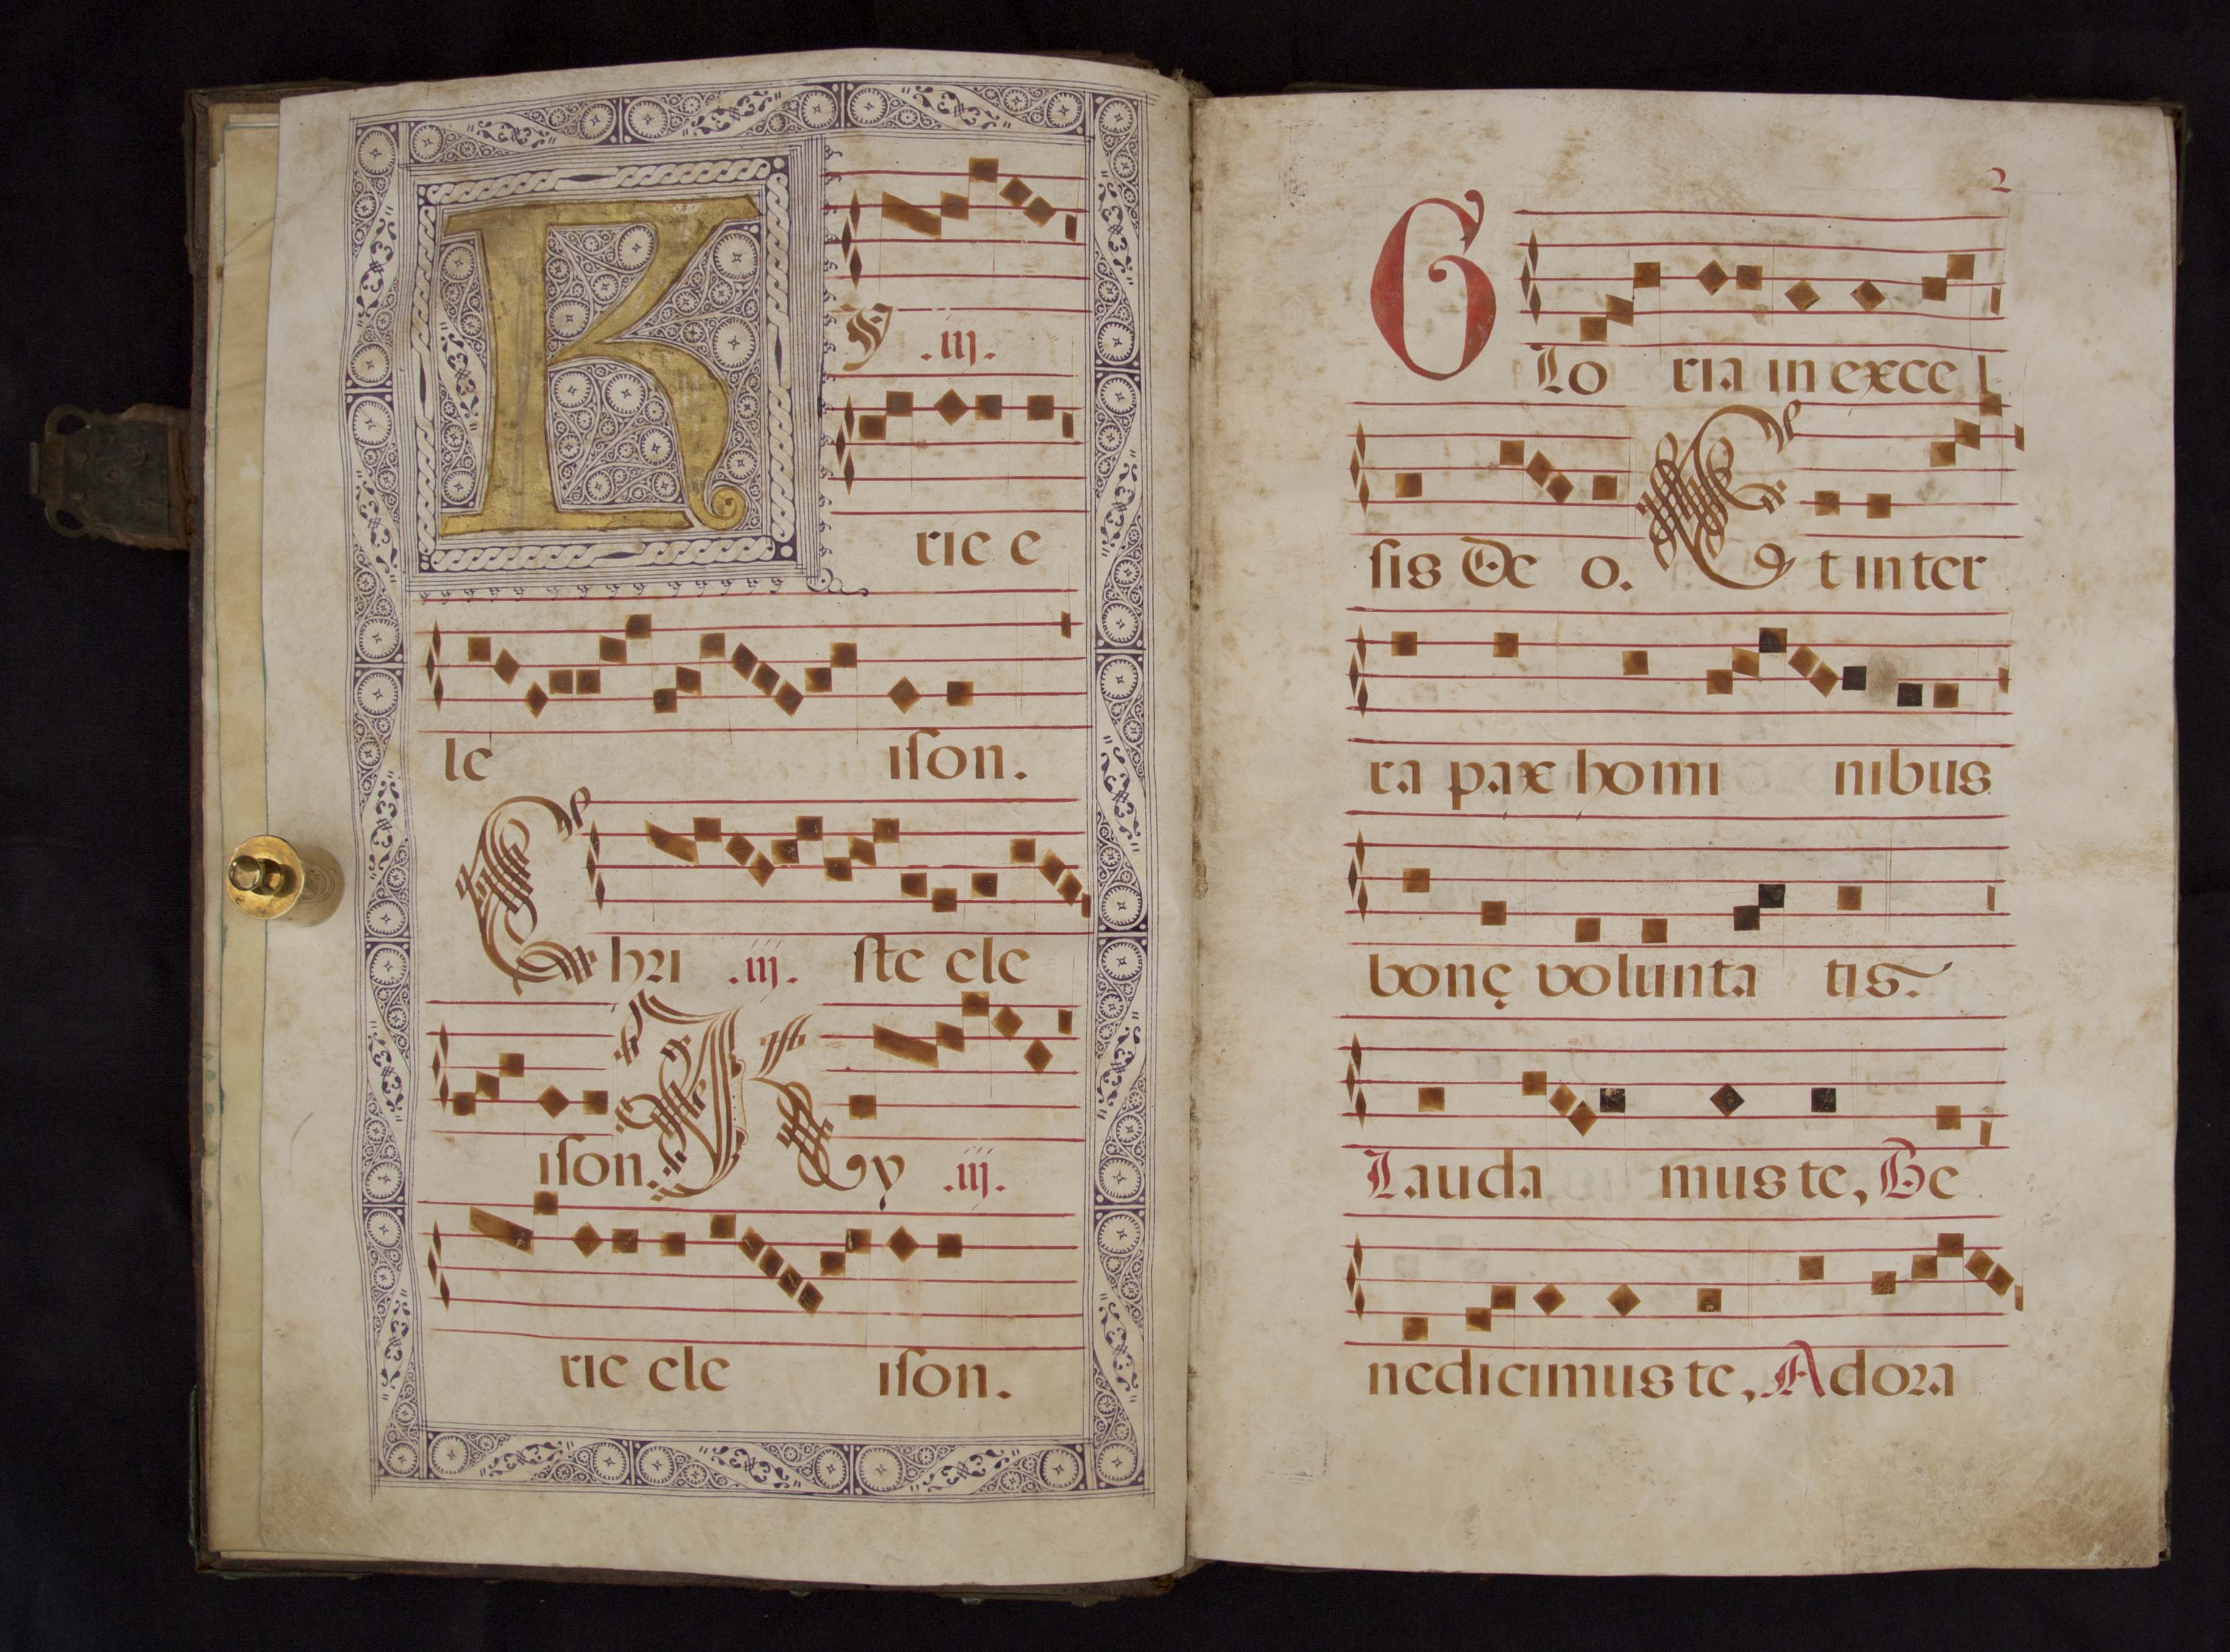 K
Y .iij.
rie e
le iſon.
Chri .iij. ſte ele
iſon. Ky .iij.
rie ele iſon.
2
Glo ria in exce l
ſis De o. Et in ter
ra pax homi nibus
bonę volunta tis.
Lauda mus te, Be
nedicimus te, Adora